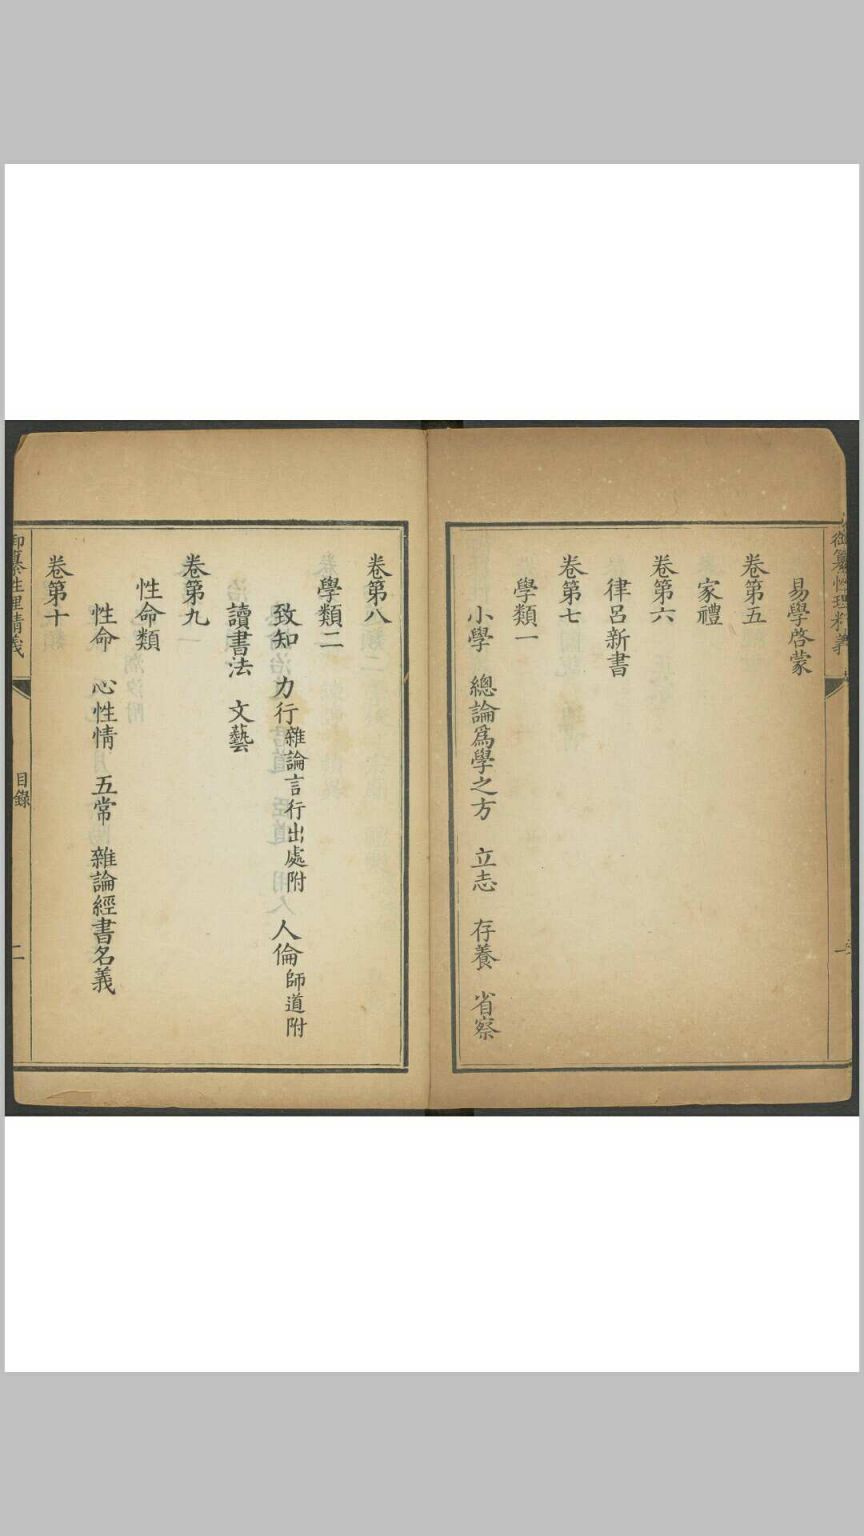 易學啓蒙
卷第五
家禮
卷第六
律呂新書
卷第七
學類一
小學 總論爲學之方 立志 存養 省察
卷第八
學類二
致知 力行雜論言行出處附 人倫師道附
讀書法 文藝
卷第九
性命類
性命 心性情 五常 雜論經書名義
卷第十
目錄
二